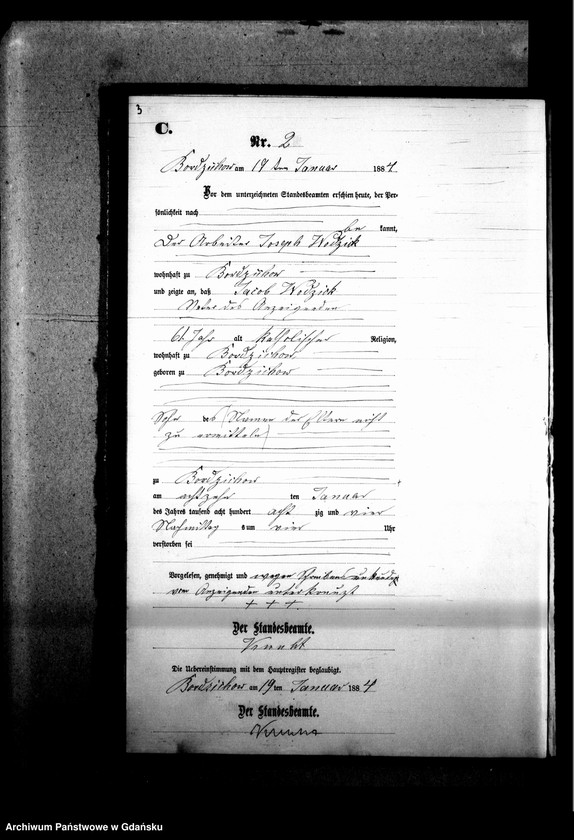 3
C.
Nr. 2
Bordzichow am 19 ten Januar 1884
Vor dem unterzeichneten Standesbeamten erschien heute, der Per-
sönlichkeit nach
be kannt,
Der Arbeiter Joseph Wodzick
wohnhaft zu Bordzichow
und zeigte an, daß Jacob Wodzick
Vater des Anzeigenden
61 Jahr alt katholischer Religion,
wohnhaft zu Bordzichow
geboren zu Bordzichow
Sohn des (Namen der Eltern nicht
zu ermitteln)
zu Bordzichow
am achtzehn ten Januar
des Jahres tausend acht hundert acht zig und vier
Nachmittag s um vier Uhr
verstorben sei
Vorgelesen, genehmigt und wegen Schreibensunkunde
vom Anzeigenden unterkreuzt
+ + +
Der Standesbeamte.
Die Uebereinstimmung mit dem Hauptregister beglaubigt.
Bordzichow am 19 ten Januar 1884
Der Standesbeamte.
Archiwum Państwowe w Gdańsku